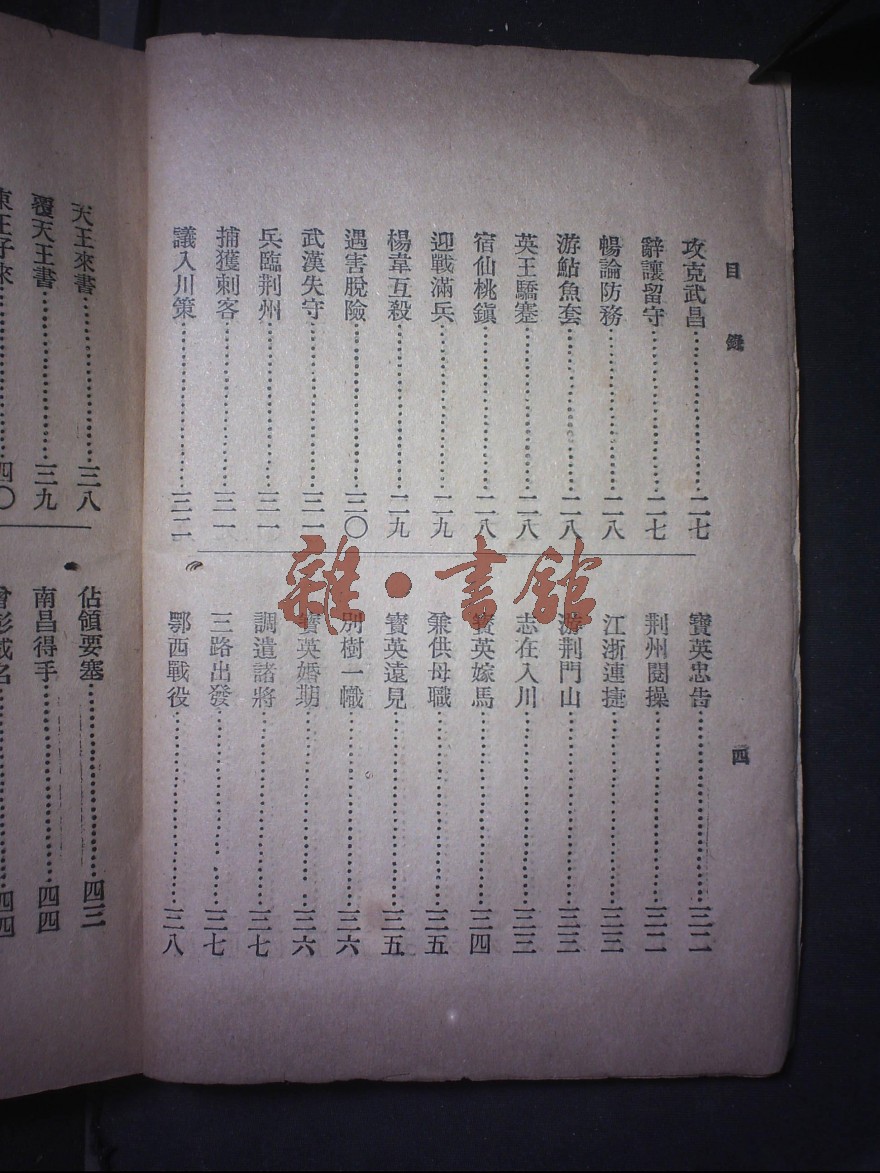 目錄
攻克武昌……二七
辭讓留守……二七
暢論防務……二八
游鮎魚套……二八
英王驕蹇……二八
宿仙桃鎮……二八
迎戰滿兵……二九
楊韋互殺……二九
遇害脫險……三〇
武漢失守……三一
兵臨荆州……三一
捕獲刺客……三一
議入川策……三二
寶英忠告……三二
荆州閱操……三二
江浙連捷……三三
游荆門山……三三
志在入川……三三
寶英嫁馬……三四
兼供母職……三五
寶英遠見……三五
別樹一幟……三六
寶英婚期……三六
調遣諸將……三七
三路出發……三七
鄂西戰役……三八
四
天王來書……三八
覆天王書……三九
東王子來……四〇
佔領要塞……四三
南昌得手……四四
曾彭威名……四四
雜·書館